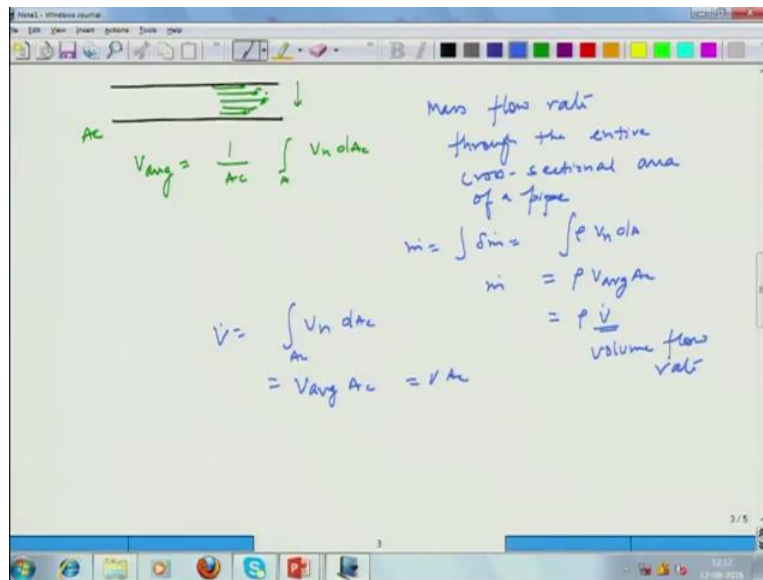 Note1 - Windows Journal
File Edit View Insert Actions Tools Help
Ac
Vavg = 1/Ac ∫A Vn dAc
mass flow rate
through the entire
cross-sectional area
of a pipe
ṁ = ∫ δṁ = ∫ ρ Vn dA
ṁ = ρ Vavg Ac
= ρ V̇
volume flow
rate
V̇ = ∫Ac Vn dAc
= Vavg Ac = V Ac
3/5
3
12:17